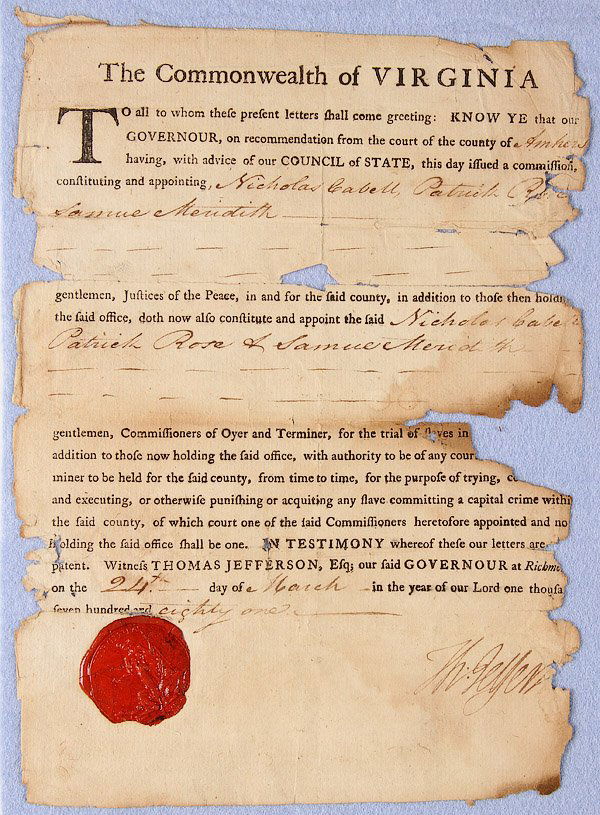 The Commonwealth of VIRGINIA
TO all to whom these present letters shall come greeting: KNOW YE that our
GOVERNOUR, on recommendation from the court of the county of Amhers
having, with advice of our COUNCIL of STATE, this day issued a commission,
constituting and appointing, Nicholas Cabell, Patrick Rose
Samue Meridith
gentlemen, Justices of the Peace, in and for the said county, in addition to those then holdin
the said office, doth now also constitute and appoint the said Nicholas Cabell
Patrick Rose & Samue Meridith
gentlemen, Commissioners of Oyer and Terminer, for the trial of slaves in
addition to those now holding the said office, with authority to be of any cour
miner to be held for the said county, from time to time, for the purpose of trying,
and executing, or otherwise punishing or acquiting any slave committing a capital crime withi
the said county, of which court one of the said Commissioners heretofore appointed and no
holding the said office shall be one. IN TESTIMONY whereof these our letters are
patent. Witness THOMAS JEFFERSON, Esq; our said GOVERNOUR at Richm
on the 24th day of March in the year of our Lord one thousa
seven hundred and eighty one
Th: Jefferson